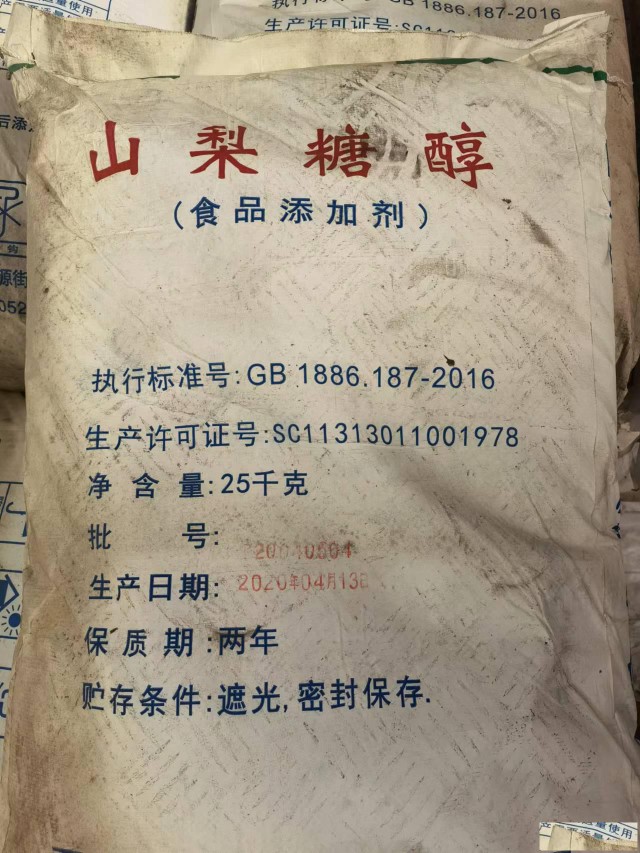 量使用
执行标准号:GB 1886.187-2016
生产许可证号:SC11
后添
山梨糖醇
(食品添加剂)
源街
052
执行标准号:GB 1886.187-2016
生产许可证号:SC11313011001978
净含量:25千克
批号:
生产日期:2020年04月13日
保质期:两年
贮存条件:遮光,密封保存.
量使用